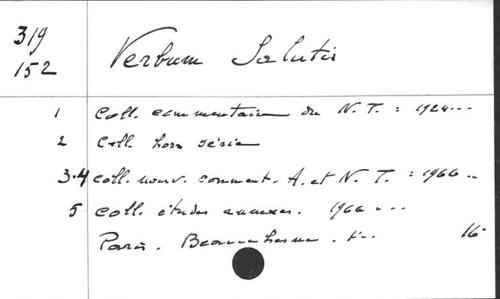 319
152
Verbum Salutis
1 Coll. commentaire du N. T. : 1924...
2 Coll. hors série
3-4 coll. nouv. comment. A. et N. T. : 1966..
5 coll. études annexes. 1966...
Paris. Beauchesne. 16